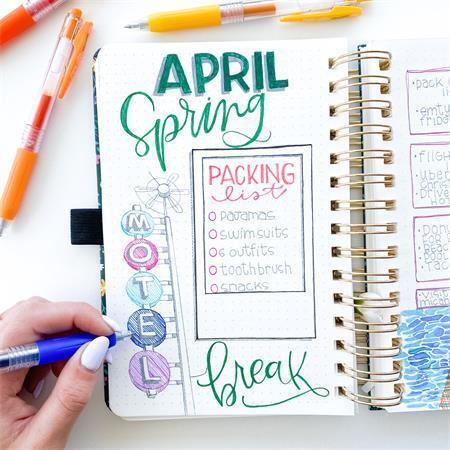 APRIL
Spring
PACKING
list
pajamas
swimsuits
6 outfits
toothbrush
snacks
MOTEL
break
pack
emty
fridge
FLIGH
Uber
Drive